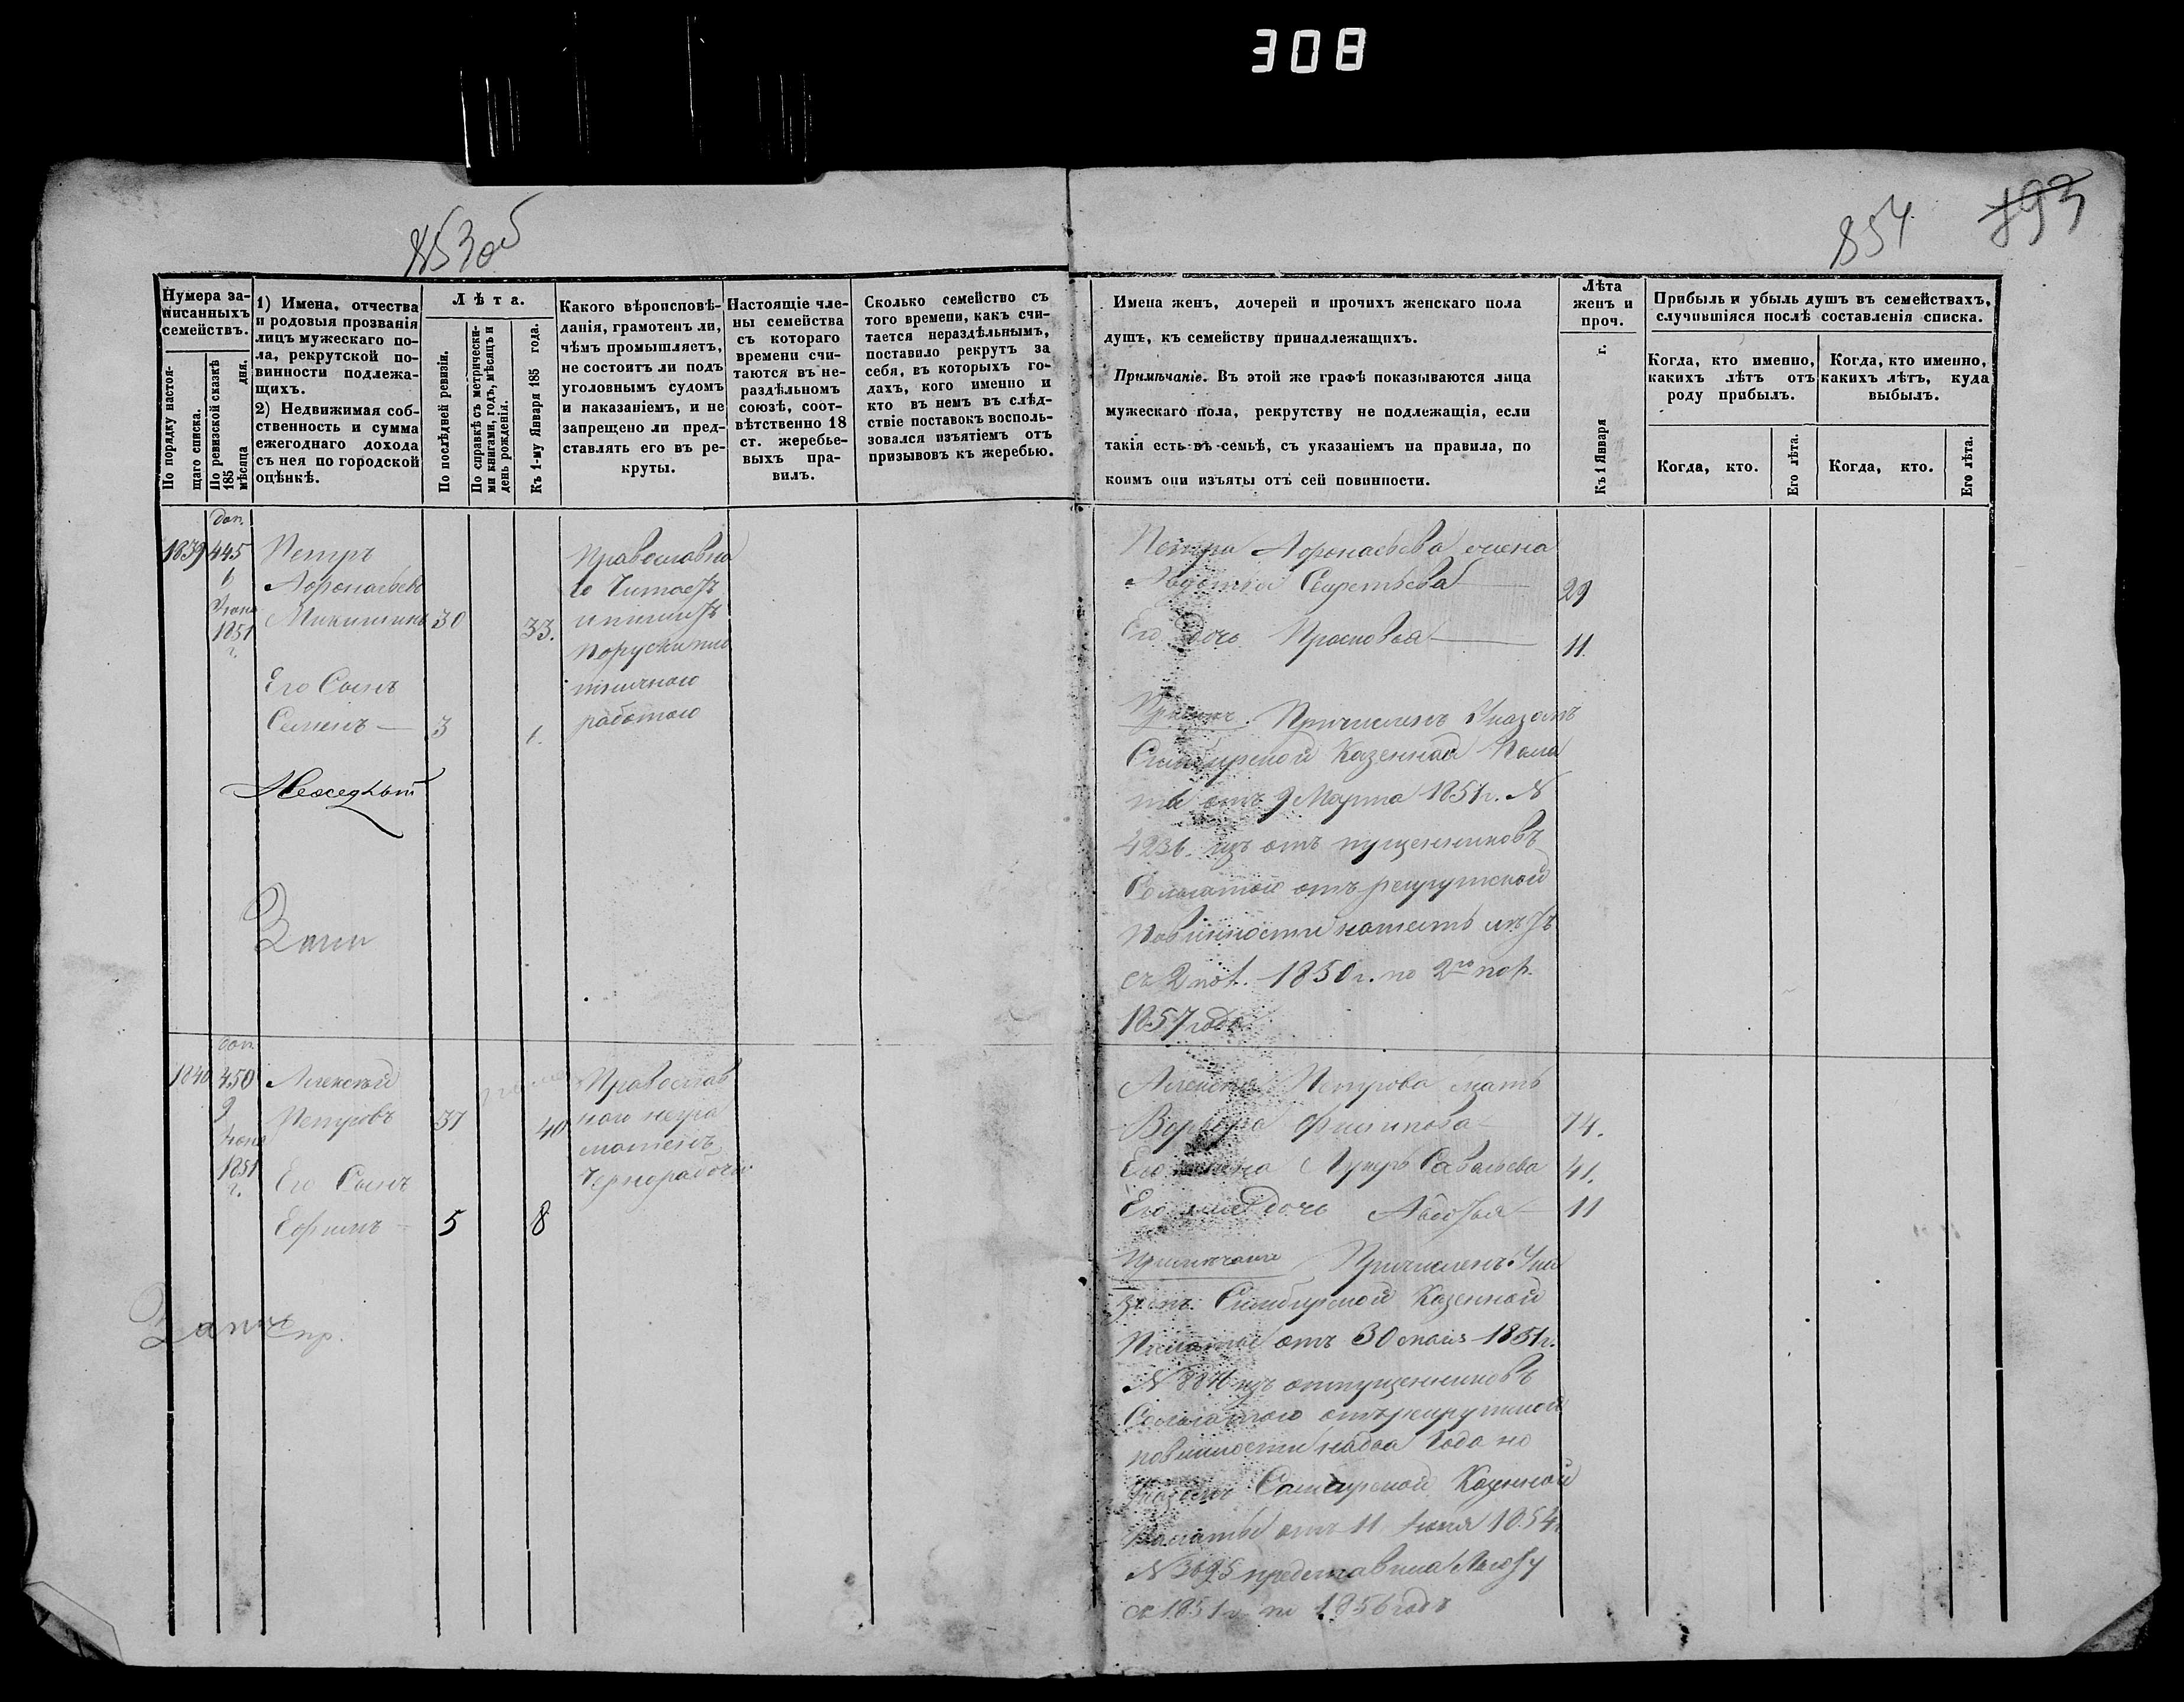 308
853 об
854
193
Нумера за-
писанныхъ
семействъ.
По порядку настоя-
щаго списка.
По ревизской сказкѣ
185 дня.
мѣсяца
1) Имена, отчества
и родовыя прозванія
лицъ мужескаго по-
ла, рекрутской по-
винности подлежа-
щихъ.
2) Недвижимая соб-
ственность и сумма
ежегоднаго дохода
съ нея по городской
оцѣнкѣ.
Лѣта.
По послѣдней ревизіи.
По справкѣ съ метрически-
ми книгами, годъ, мѣсяцъ и
день рожденія.
Къ 1-му Января 185 года.
Какого вѣроисповѣ-
данія, грамотенъ ли,
чѣмъ промышляетъ,
не состоитъ ли подъ
уголовнымъ судомъ
и наказаніемъ, и не
запрещено ли пред-
ставлять его въ ре-
круты.
Настоящіе чле-
ны семейства
съ котораго
времени счи-
таются въ не-
раздѣльномъ
союзѣ, соот-
вѣтственно 18
ст. жеребье-
выхъ пра-
вилъ.
Сколько семейство съ
того времени, какъ счи-
тается нераздѣльнымъ,
поставило рекрутъ за
себя, въ которыхъ го-
дахъ, кого именно и
кто въ немъ въ слѣд-
ствіе поставокъ восполь-
зовался изъятіемъ отъ
призывовъ къ жеребью.
Имена женъ, дочерей и прочихъ женскаго пола
душъ, къ семейству принадлежащихъ.
Примѣчаніе. Въ этой же графѣ показываются лица
мужескаго пола, рекрутству не подлежащія, если
такія есть въ семьѣ, съ указаніемъ на правила, по
коимъ они изъяты отъ сей повинности.
Лѣта
женъ и
проч.
Къ 1 Января г.
Прибыль и убыль душъ въ семействахъ,
случившіяся послѣ составленія списка.
Когда, кто именно,
какихъ лѣтъ отъ
роду прибылъ.
Когда, кто именно,
какихъ лѣтъ, куда
выбылъ.
Когда, кто.
Его лѣта.
Когда, кто.
Его лѣта.
доп.
1839 445
Петръ
6
Іюня
1851
г.
30
33.
Его Сынъ
Семенъ 3
6.
Православна
го Читаетъ
и пишетъ
работою
Петра Афонасьева жена
29
Его дочь Прасковья 11.
Причисленъ Указомъ
Симбирской Казенной Пала
ты отъ 9 Марта 1851 г. N
4236. изъ отъ пущенниковъ
отъ рекрутской
повинности
съ 2 пол. 1850 г. по 2ю пол.
1857 года.
доп.
1840 450
Алексѣй
9
Іюня
1851
г.
Петровъ 37
40
Его Сынъ
Ефимъ 5
8
Православ
наго негра
мотенъ
Чернорабочій
Алексѣя Петрова мать
Варвара Филипова 74.
Его жена Савельева 41.
Его дочь 11
Примѣчаніе Причисленъ Ука
зомъ Симбирской Казенной
Палаты отъ 30 мая 1851 г.
изъ отпущенниковъ
повинности года но
Указомъ Самарской Казенной
Палаты отъ 11 Іюня 1854 г.
N 3695
съ 1851 г. по 1856 годъ